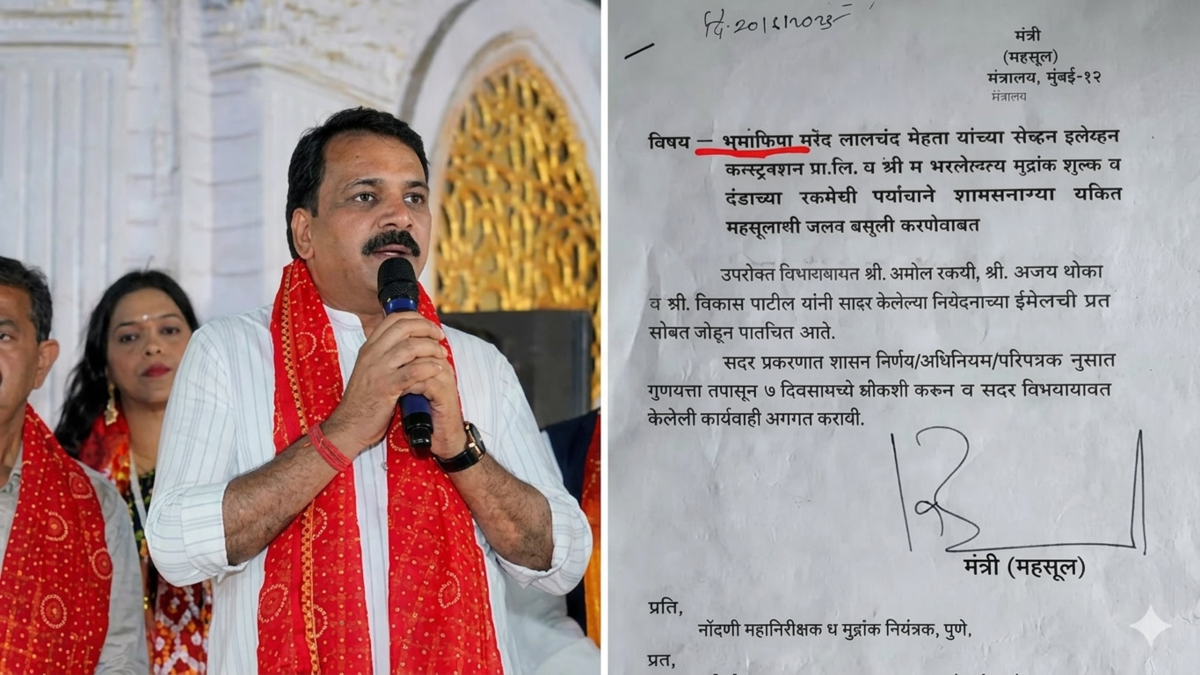 दि. २०/६/२०२३
मंत्री
(महसूल)
मंत्रालय, मुंबई-१२
मंत्रालय
विषय – भुमाफिपा मरेंद लालचंद मेहता यांच्या सेव्हन इलेव्हन
कन्स्ट्रक्शन प्रा.लि. व श्री म भरलेल्दत्य मुद्रांक शुल्क व
दंडाच्या रकमेची पर्याचाने शामसनाग्या यकित
महसूलाथी जलव बसुली करणेवाबत
उपरोक्त विभायबायत श्री. अमोल रकयी, श्री. अजय थोका
व श्री. विकास पाटील यांनी सादर केलेल्या नियेदनाच्या ईमेलची प्रत
सोबत जोहून पातचित आते.
सदर प्रकरणात शासन निर्णय/अधिनियम/परिपत्रक नुसात
गुणयत्ता तपासून ७ दिवसामच्चे श्रीकशी करुन व सदर विभयायावत
केलेली कार्यवाही अगगत करायी.
मंत्री (महसूल)
प्रति,
नॉदणी महानिरीक्षक ध मुद्रांक नियंत्रक, पुणे,
प्रत,